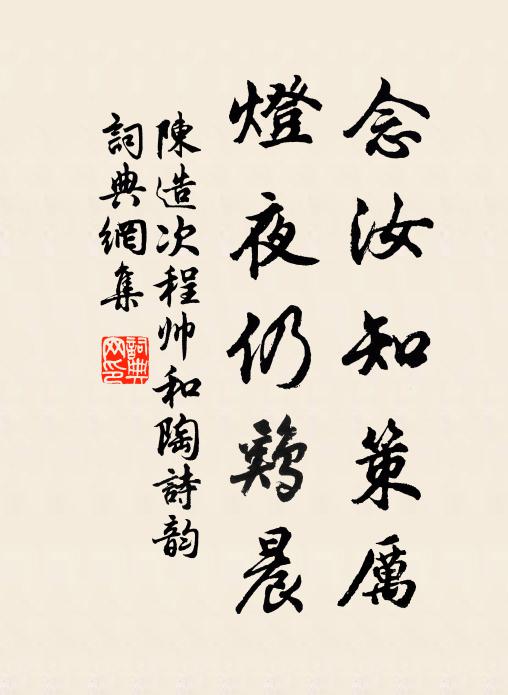 念汝知策厲
燈夜仍鷄晨
陳造次程帅和陶詩韵
詞典網集
詞典
网印